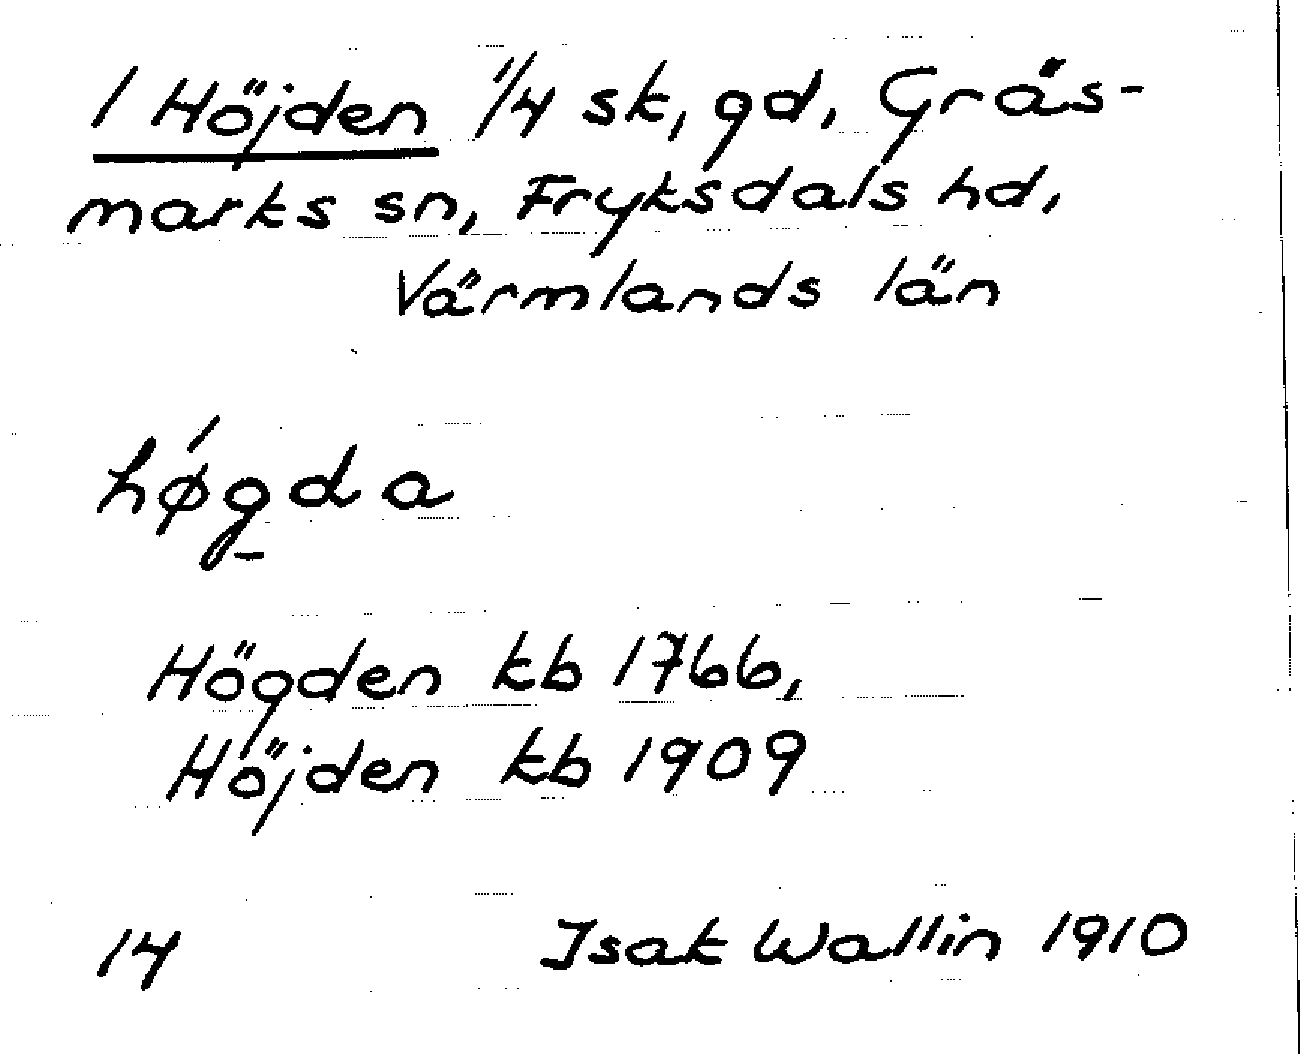 1 Höjden 1/4 sk, gd, Gräs-
marks sn, Fryksdals hd,
Värmlands län
hǿgda
Högden kb 1766,
Höjden kb 1909
14 Isak Wallin 1910